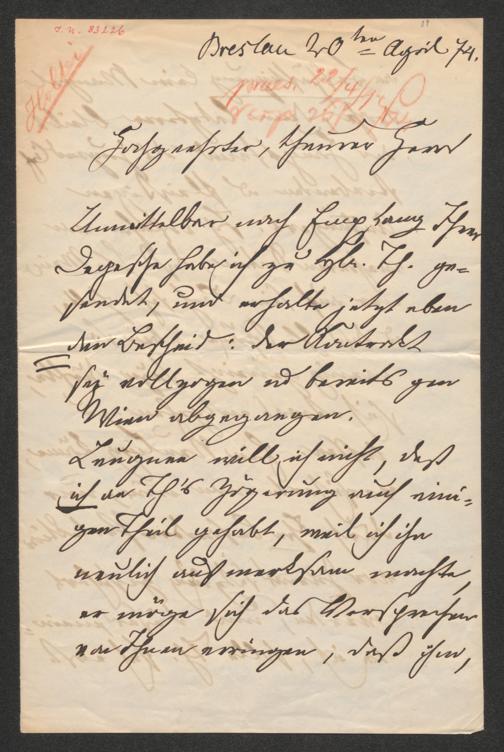 J. N. 83226
Holtei
Breslau 20ten April 74.
praes. 22/4 74
Hochgeehrter, theurer Herr
Unmittelbar nach Empfang Ihrer
Depesche habe ich zu Th. ge-
sendet, und erhalte jetzt eben
den Bescheid: der Kontrakt
sey vollzogen und bereits gen
Wien abgegangen.
Leugnen will ich nicht, daß
ich an Th's Zögerung auch eini-
gen Theil gehabt, weil ich ihn
neulich aufmerksam machte,
er möge sich das Versprechen
von Ihnen erringen, daß ihm,